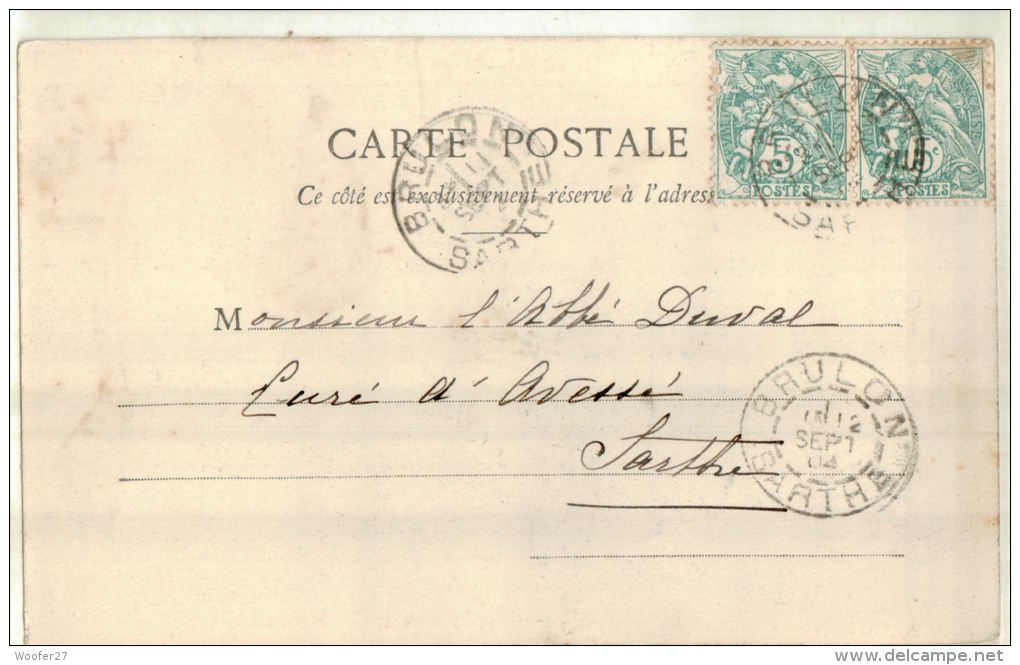 CARTE POSTALE
Ce côté est exclusivement réservé à l'adresse
5c
POSTES
5c
POSTES
BRULON
SEPT
SARTHE
Monsieur l'Abbé Duval
Curé d'Avessé
Sarthe
BRULON
12
SEPT
04
SARTHE
Woofer27
delcampe.net